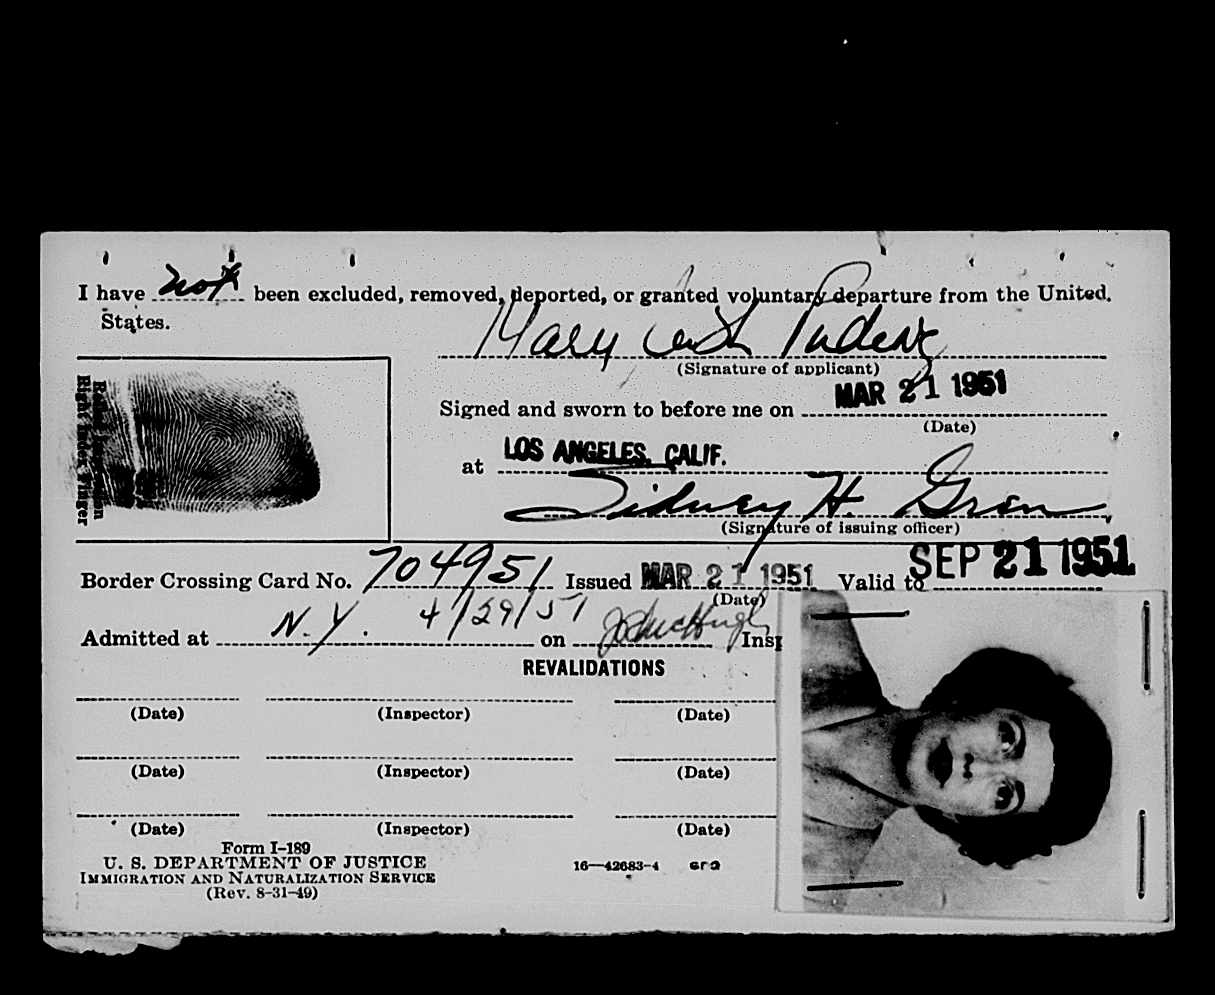 I have not been excluded, removed, deported, or granted voluntary departure from the United
States.
Mary
(Signature of applicant)
Signed and sworn to before me on MAR 21 1951
(Date)
at LOS ANGELES, CALIF.
Sidney H. Gren
(Signature of issuing officer)
Right Index Finger
Border Crossing Card No. 704951 Issued MAR 21 1951 Valid to SEP 21 1951
(Date)
Admitted at N.Y. 4/29/51 on
REVALIDATIONS
(Date) (Inspector) (Date)
(Date) (Inspector) (Date)
(Date) (Inspector) (Date)
Form I-189
U. S. DEPARTMENT OF JUSTICE
IMMIGRATION AND NATURALIZATION SERVICE
(Rev. 8-31-49)
16—42683-4 GPO